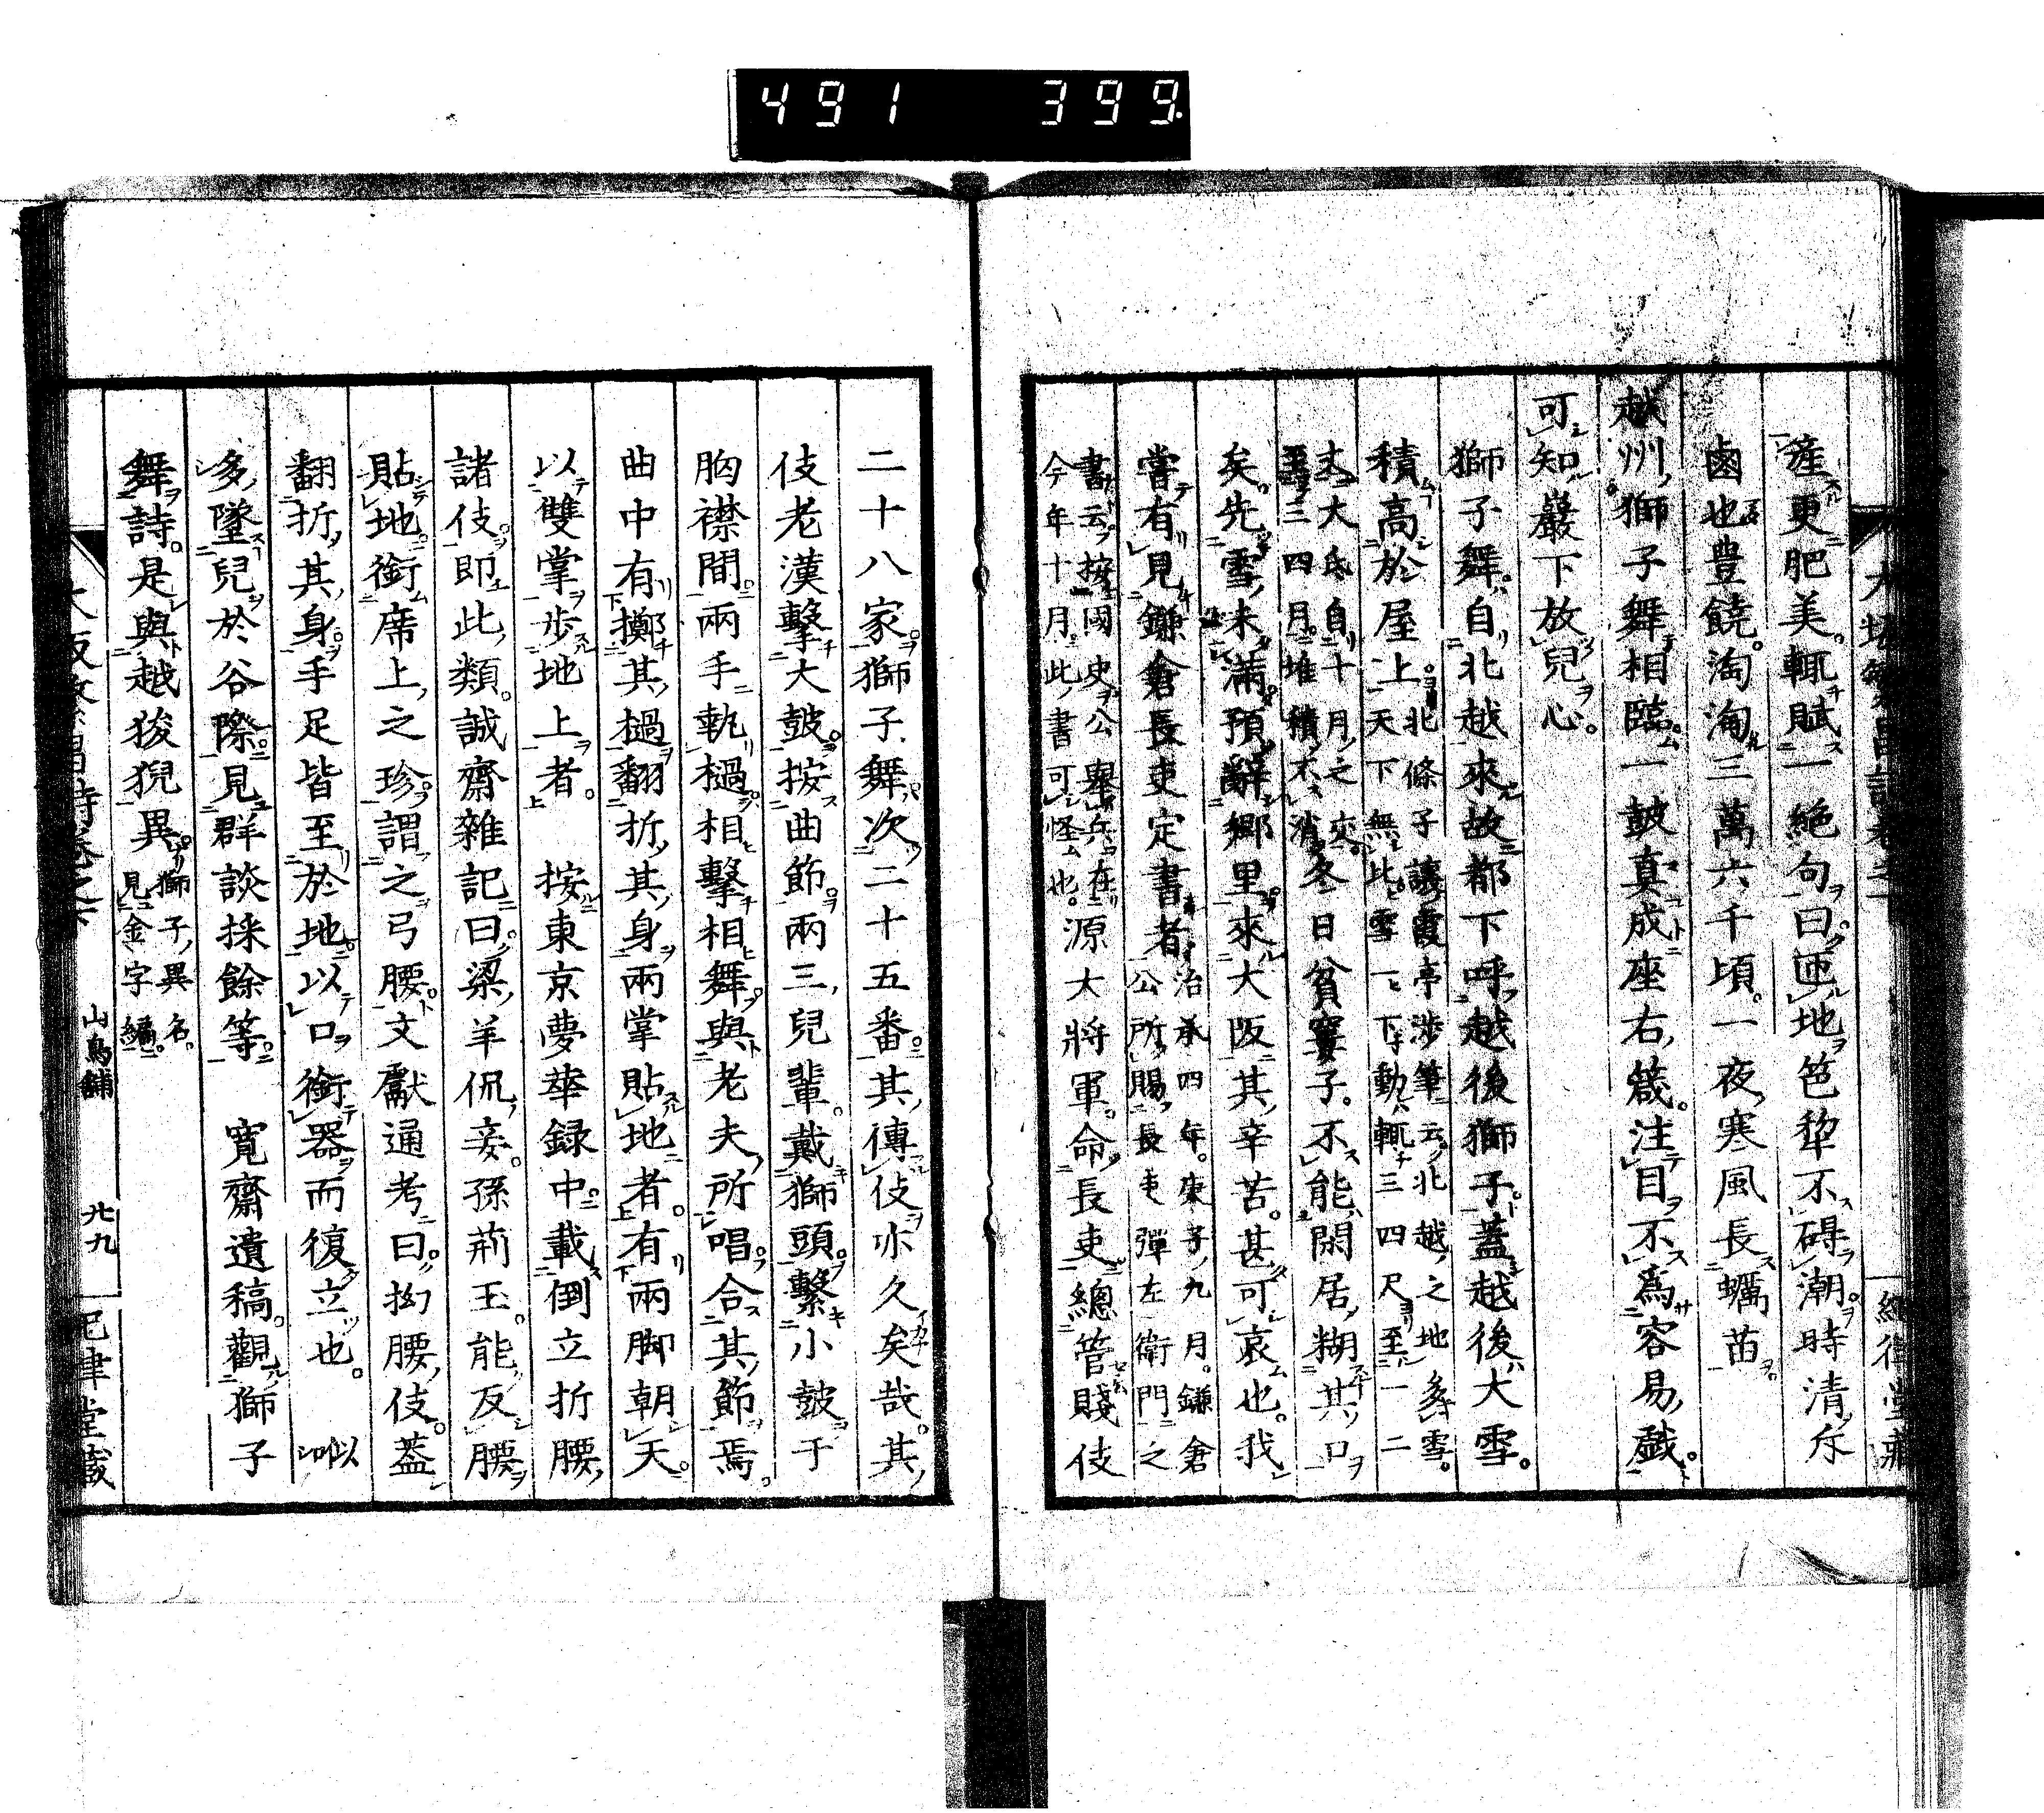 491 399
産更肥美輒賦一絶句曰匝地笆犂不碍潮時清斥
鹵也豊饒淘淘三萬六千頃一夜寒風長蠣苗
越州獅子舞相臨一皷真成座右箴注目不爲容易戲
可知巖下放兒心
獅子舞自北越來故都下呼越後獅子蓋越後大雪
積高於屋上北條子讓霞亭渉筆云北越之地多雪
天下無此雪一下動輒三四尺至一二
丈大氐自十月之交
至三四月堆積不消冬日貧窶子不能閑居糊其口
矣先雪未滿預辭郷里來大阪其辛苦甚可哀也我
嘗有見鎌倉長吏定書者治承四年庚子九月鎌倉
公所賜長吏彈左衛門之
書云按國史公舉兵在
今年十月此書可怪也源大將軍命長吏總管賤伎
二十八家獅子舞次二十五番其傳伎亦久矣哉其
伎老漢擊大皷按曲節兩三兒輩戴獅頭繫小皷于
胸襟間兩手執檛相擊相舞與老夫所唱合其節焉
曲中有擲其檛翻折其身兩掌貼地者有兩脚朝天
以雙掌歩地上者 按東京夢華録中載倒立折腰
諸伎即此類誠齋雜記曰梁羊侃妾孫荊玉能反腰
貼地銜席上之珍謂之弓腰文獻通考曰拗腰伎蓋
翻折其身手足皆至於地以口銜器而復立也 以似
多墜兒於谷際見群談採餘等 寛齋遺稿觀獅子
舞詩是與越狻猊異獅子異名
見金字編
山鳥舖 廿九